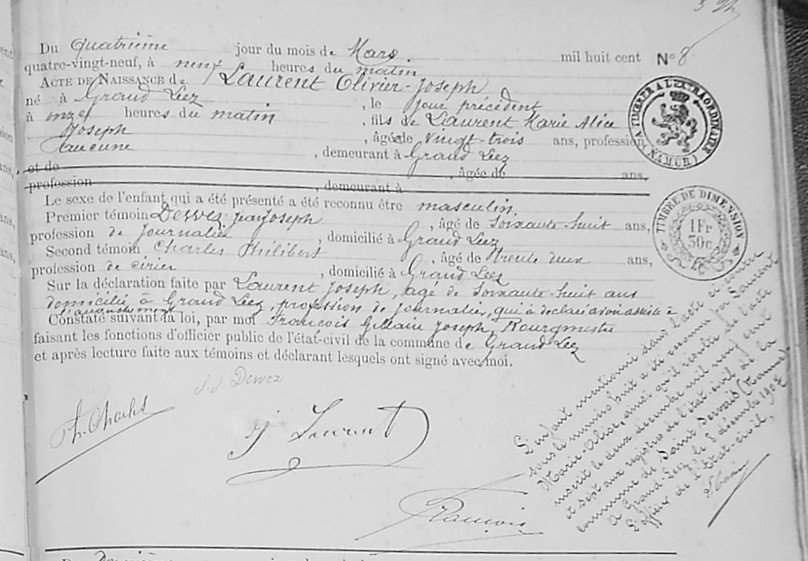 Du Quatrième jour du mois de Mars mil huit cent N° 8
quatre-vingt-neuf, à neuf heures du matin
ACTE DE NAISSANCE de Laurent Olivier-Joseph
né à Grand Leez, le jour précédent
à onze heures du matin, fils de Laurent Marie Alice
Joseph, âgée de vingt-trois ans, profession
aucune, demeurant à Grand Leez
et de, âgée de ans,
profession, demeurant à
Le sexe de l'enfant qui a été présenté a été reconnu être masculin.
Premier témoin Dewez Joseph, âgé de soixante-huit ans,
profession de journalier, domicilié à Grand Leez
Second témoin Charles Philibert, âgé de trente deux ans,
profession de cirier, domicilié à Grand Leez
Sur la déclaration faite par Laurent Joseph, âgé de soixante-huit ans
domicilié à Grand Leez, profession de journalier, qui a déclaré avoir assisté à
l'accouchement
Constaté suivant la loi, par moi François Joseph, Bourgmestre
faisant les fonctions d'officier public de l'état-civil de la commune de Grand Leez
et après lecture faite aux témoins et déclarant lesquels ont signé avec moi.
J. J. Dewez
Ph. Charles
J Laurent
François
A TIMBRER A L'EXTRAORDINAIRE
(NAMUR)
TIMBRE DE DIMENSION
1 Fr
30c
L'enfant mentionné dans l'acte ci-contre
sous le numéro huit a été reconnu par Laurent
Marie Alice, ainsi qu'il résulte de l'acte
inscrit le deux décembre mil neuf cent
et sept aux registres de l'état civil de la
commune de Saint Servais (Namur).
A Grand-Leez, le décembre 1907
L'officier de l'Etat-Civil,